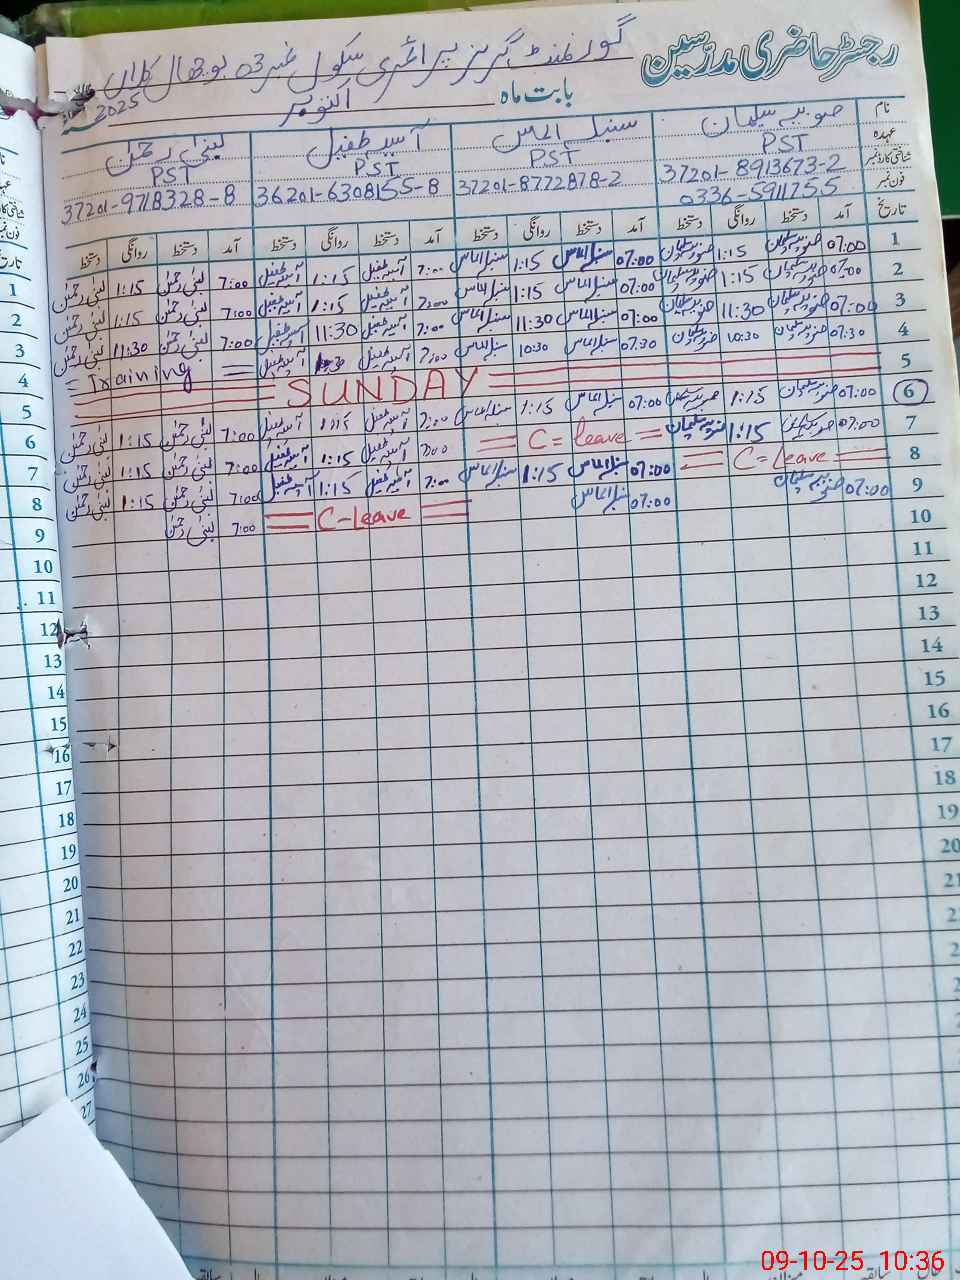 رجسٹر حاضری مدرسین
گورنمنٹ گرلز پرائمری سکول نمبر 03 بوچھال کلاں
بابت ماہ اکتوبر 2025
نام صوبیہ سلیمان سنبل الماس آسیہ طفیل لبنیٰ رحمٰن
عہدہ PST PST PST PST
شناختی کارڈ نمبر 37201-8913673-2 37201-8772878-2 36201-6308155-8 37201-9718328-8
فون نمبر 0336-5911755
تاریخ آمد دستخط روانگی دستخط آمد دستخط روانگی دستخط آمد دستخط روانگی دستخط آمد دستخط روانگی دستخط
1 07:00 صوبیہ سلیمان 1:15 صوبیہ سلیمان 07:00 سنبل الماس 1:15 سنبل الماس 7:00 آسیہ طفیل 1:15 آسیہ طفیل 7:00 لبنیٰ رحمٰن 1:15 لبنیٰ رحمٰن
2 07:00 صوبیہ سلیمان 1:15 صوبیہ سلیمان 07:00 سنبل الماس 1:15 سنبل الماس 7:00 آسیہ طفیل 1:15 آسیہ طفیل 7:00 لبنیٰ رحمٰن 1:15 لبنیٰ رحمٰن
3 07:00 صوبیہ سلیمان 11:30 صوبیہ سلیمان 07:00 سنبل الماس 11:30 سنبل الماس 7:00 آسیہ طفیل 11:30 آسیہ طفیل 7:00 لبنیٰ رحمٰن 11:30 لبنیٰ رحمٰن
4 07:30 صوبیہ سلیمان 10:30 صوبیہ سلیمان 07:30 سنبل الماس 10:30 سنبل الماس 7:00 آسیہ طفیل آسیہ طفیل = Training =
5 SUNDAY
6 07:00 صوبیہ سلیمان 1:15 صوبیہ سلیمان 07:00 سنبل الماس 1:15 سنبل الماس 7:00 آسیہ طفیل 1:15 آسیہ طفیل 7:00 لبنیٰ رحمٰن 1:15 لبنیٰ رحمٰن
7 07:00 صوبیہ سلیمان 1:15 صوبیہ سلیمان C=leave 7:00 آسیہ طفیل 1:15 آسیہ طفیل 7:00 لبنیٰ رحمٰن 1:15 لبنیٰ رحمٰن
8 C=Leave 07:00 سنبل الماس 1:15 سنبل الماس 7:00 آسیہ طفیل 1:15 آسیہ طفیل 7:00 لبنیٰ رحمٰن 1:15 لبنیٰ رحمٰن
9 07:00 صوبیہ سلیمان 07:00 سنبل الماس C-leave 7:00 لبنیٰ رحمٰن
10
11
12
13
14
15
16
17
18
19
20
21
22
23
24
25
26
27
09-10-25 10:36